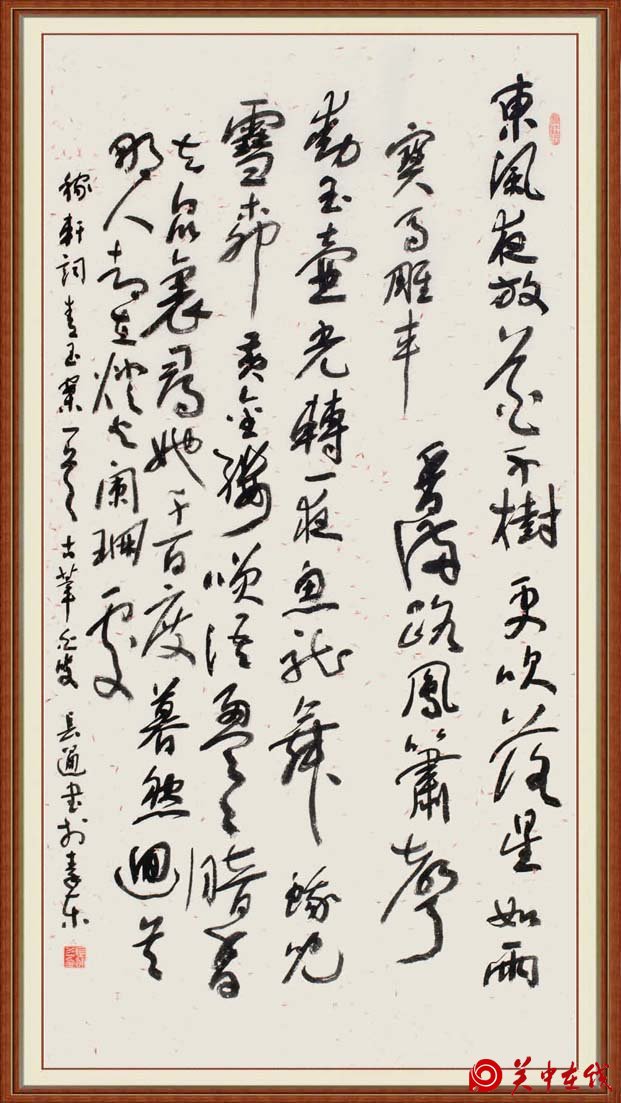 東風夜放花千樹更吹落星如雨
寶馬雕車香滿路鳳簫聲
動玉壺光轉一夜魚龍舞蛾兒
雪柳黃金縷笑語盈々暗香
去眾裏尋她千百度暮然迴首
那人卻在燈火闌珊處
稼軒詞青玉案一首 長通書於秦東
关中在线